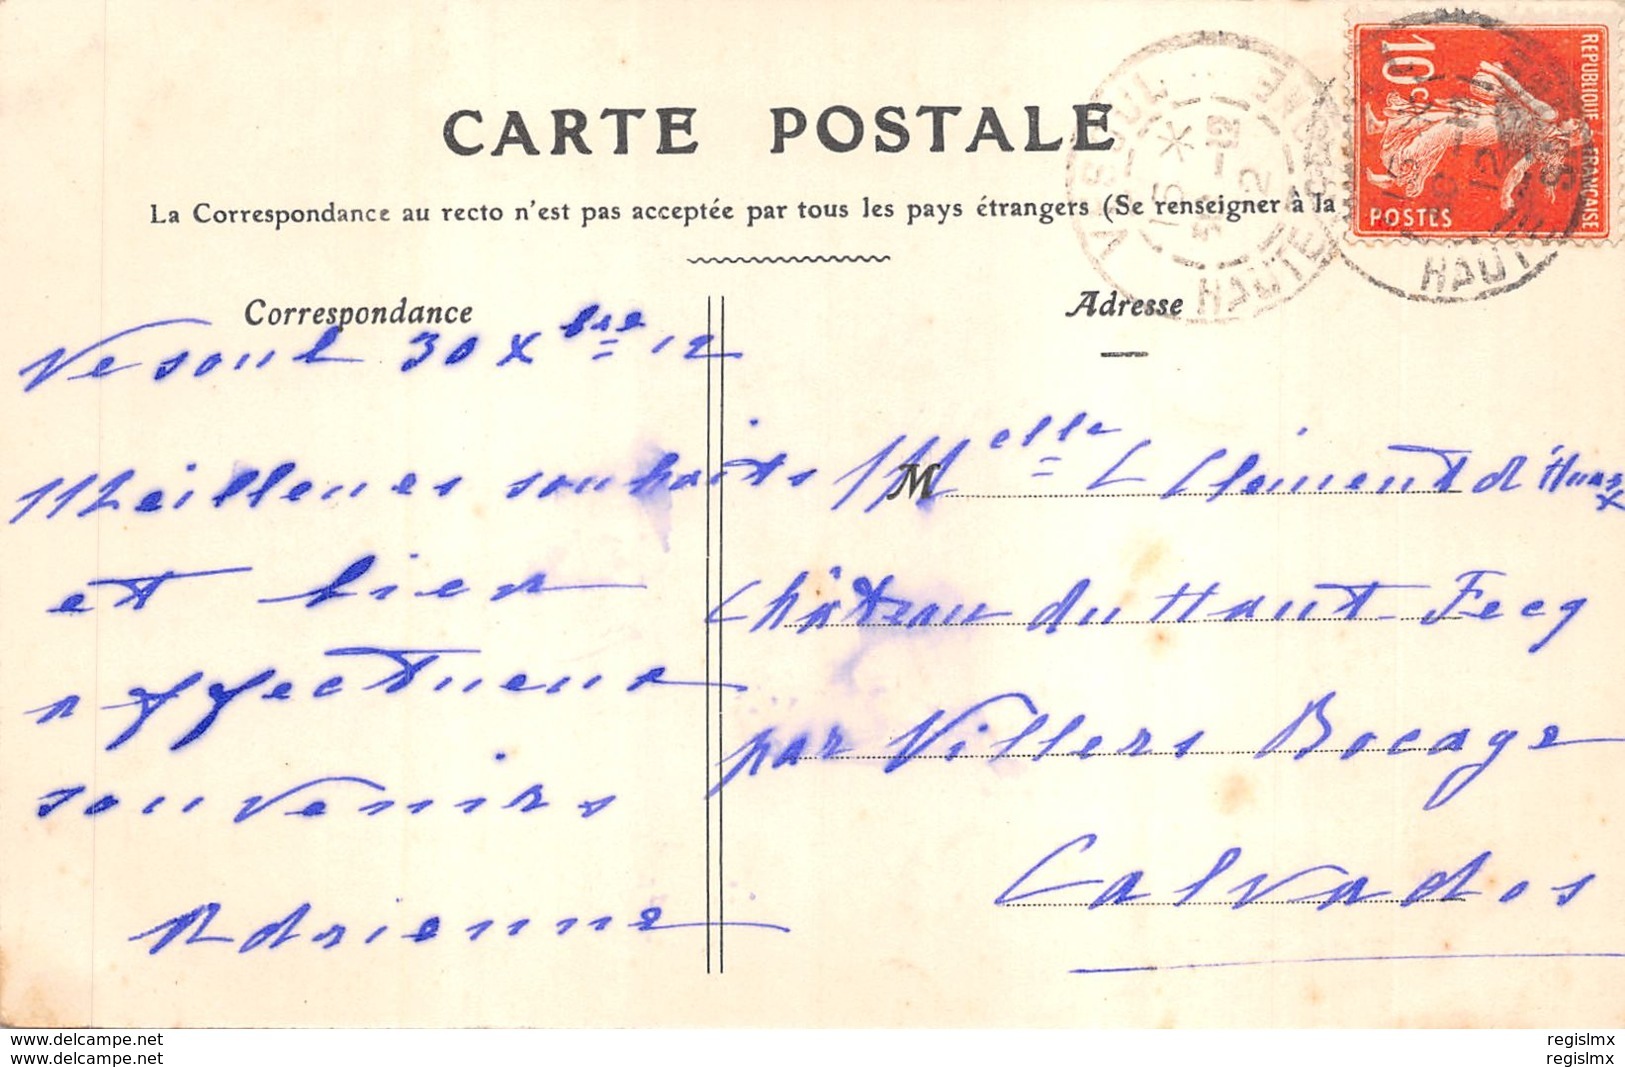 CARTE POSTALE
La Correspondance au recto n'est pas acceptée par tous les pays étrangers (Se renseigner à la
REPUBLIQUE FRANÇAISE
10 c
POSTES
VESOUL
HAUTE SAONE
HAUTE
Correspondance
Vesoul 30 Xbre 12
Meilleurs souhaits
et bien
affectueux
souvenirs
Adrienne
Adresse
M Melle L Clément
Château du Haut Fecq
par Villers Bocage
Calvados
delcampe.net
delcampe.net
regislmx
regislmx